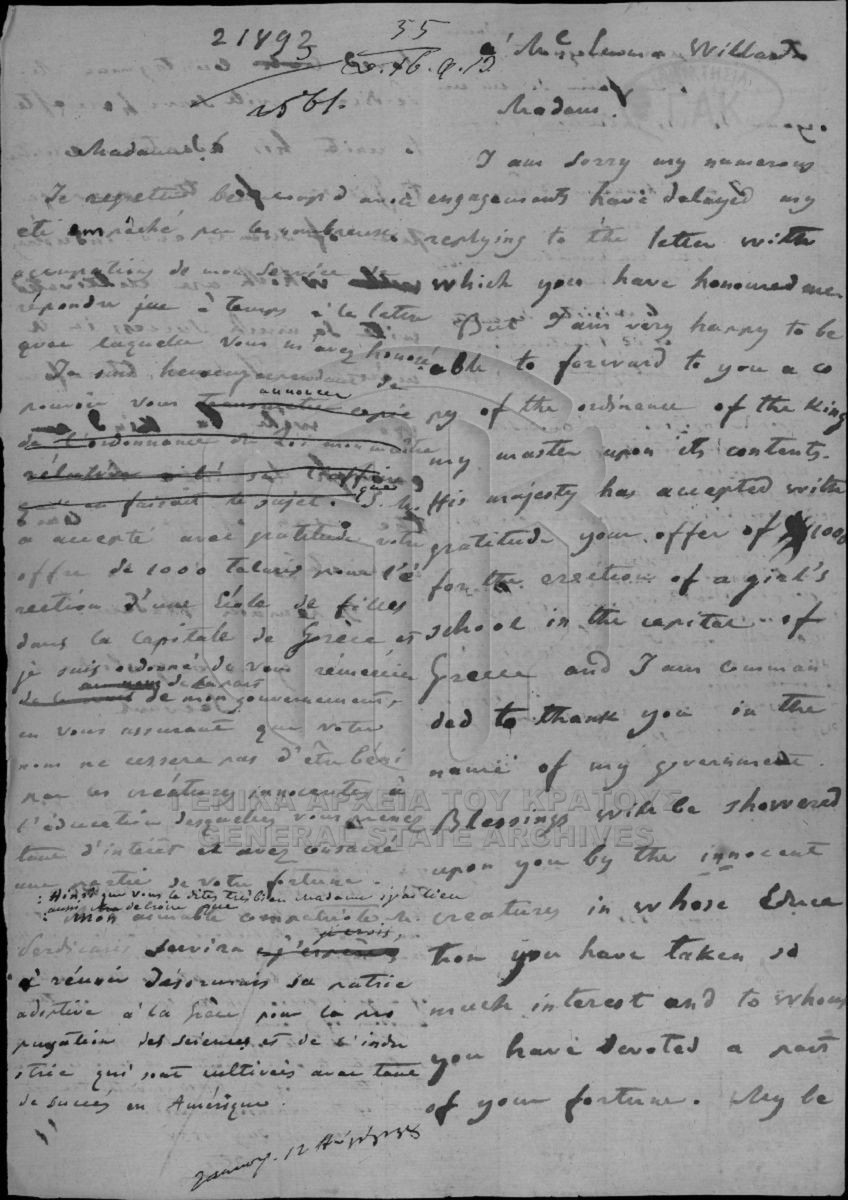 21893
35
2561.
à Me Emma Willard
Madam
Madame
Je regrette beaucoup d'avoir
été empêché par les nombreuses
occupations de mon service de
répondre à temps à la lettre
que laquelle vous m'avez honoré
Je suis heureux cependant de
pouvoir vous annoncer transmettre copie
de l'ordonnance de Roi mon maître
relative à
qui en faisait le sujet. S. M.
a accepté avec gratitude votre
offre de 1000 talaris pour l'é
rection d'une École de filles
dans la Capitale de Grèce et
je suis ordonné de vous rémercier
au nom de la part
de mon gouvernement,
en vous assurant que votre
nom ne cessera pas d'être béni
par les créatures innocentes à
l'éducation desquelles vous prenez
tant d'interêt et avez consacré
une partie de votre fortune.
Ainsi que vous le dites très bien Madame
aussi de croire que
Mon aimable compatriote
servira j'espère
je crois,
à réunir désormais sa patrie
adoptive à la Grèce pour la pro
pagation des sciences et de l'indu
strie qui sont cultivées avec tant
de succès en Amérique.
12
I am sorry my numerous
engagements have delayed my
replying to the letter with
which you have honoured me.
But I am very happy to be
able to forward to you a co
py of the ordinance of the King
my master upon its contents.
His majesty has accepted with
gratitude your offer of $1000
for the erection of a girl's
school in the capital of
Greece and I am comman
ded to thank you in the
name of my government.
Blessings will be showered
upon you by the innocent
creatures in whose Educa
tion you have taken so
much interest and to whom
you have devoted a part
of your fortune. My be
ΓΕΝΙΚΑ ΑΡΧΕΙΑ ΤΟΥ ΚΡΑΤΟΥΣ
GENERAL STATE ARCHIVES